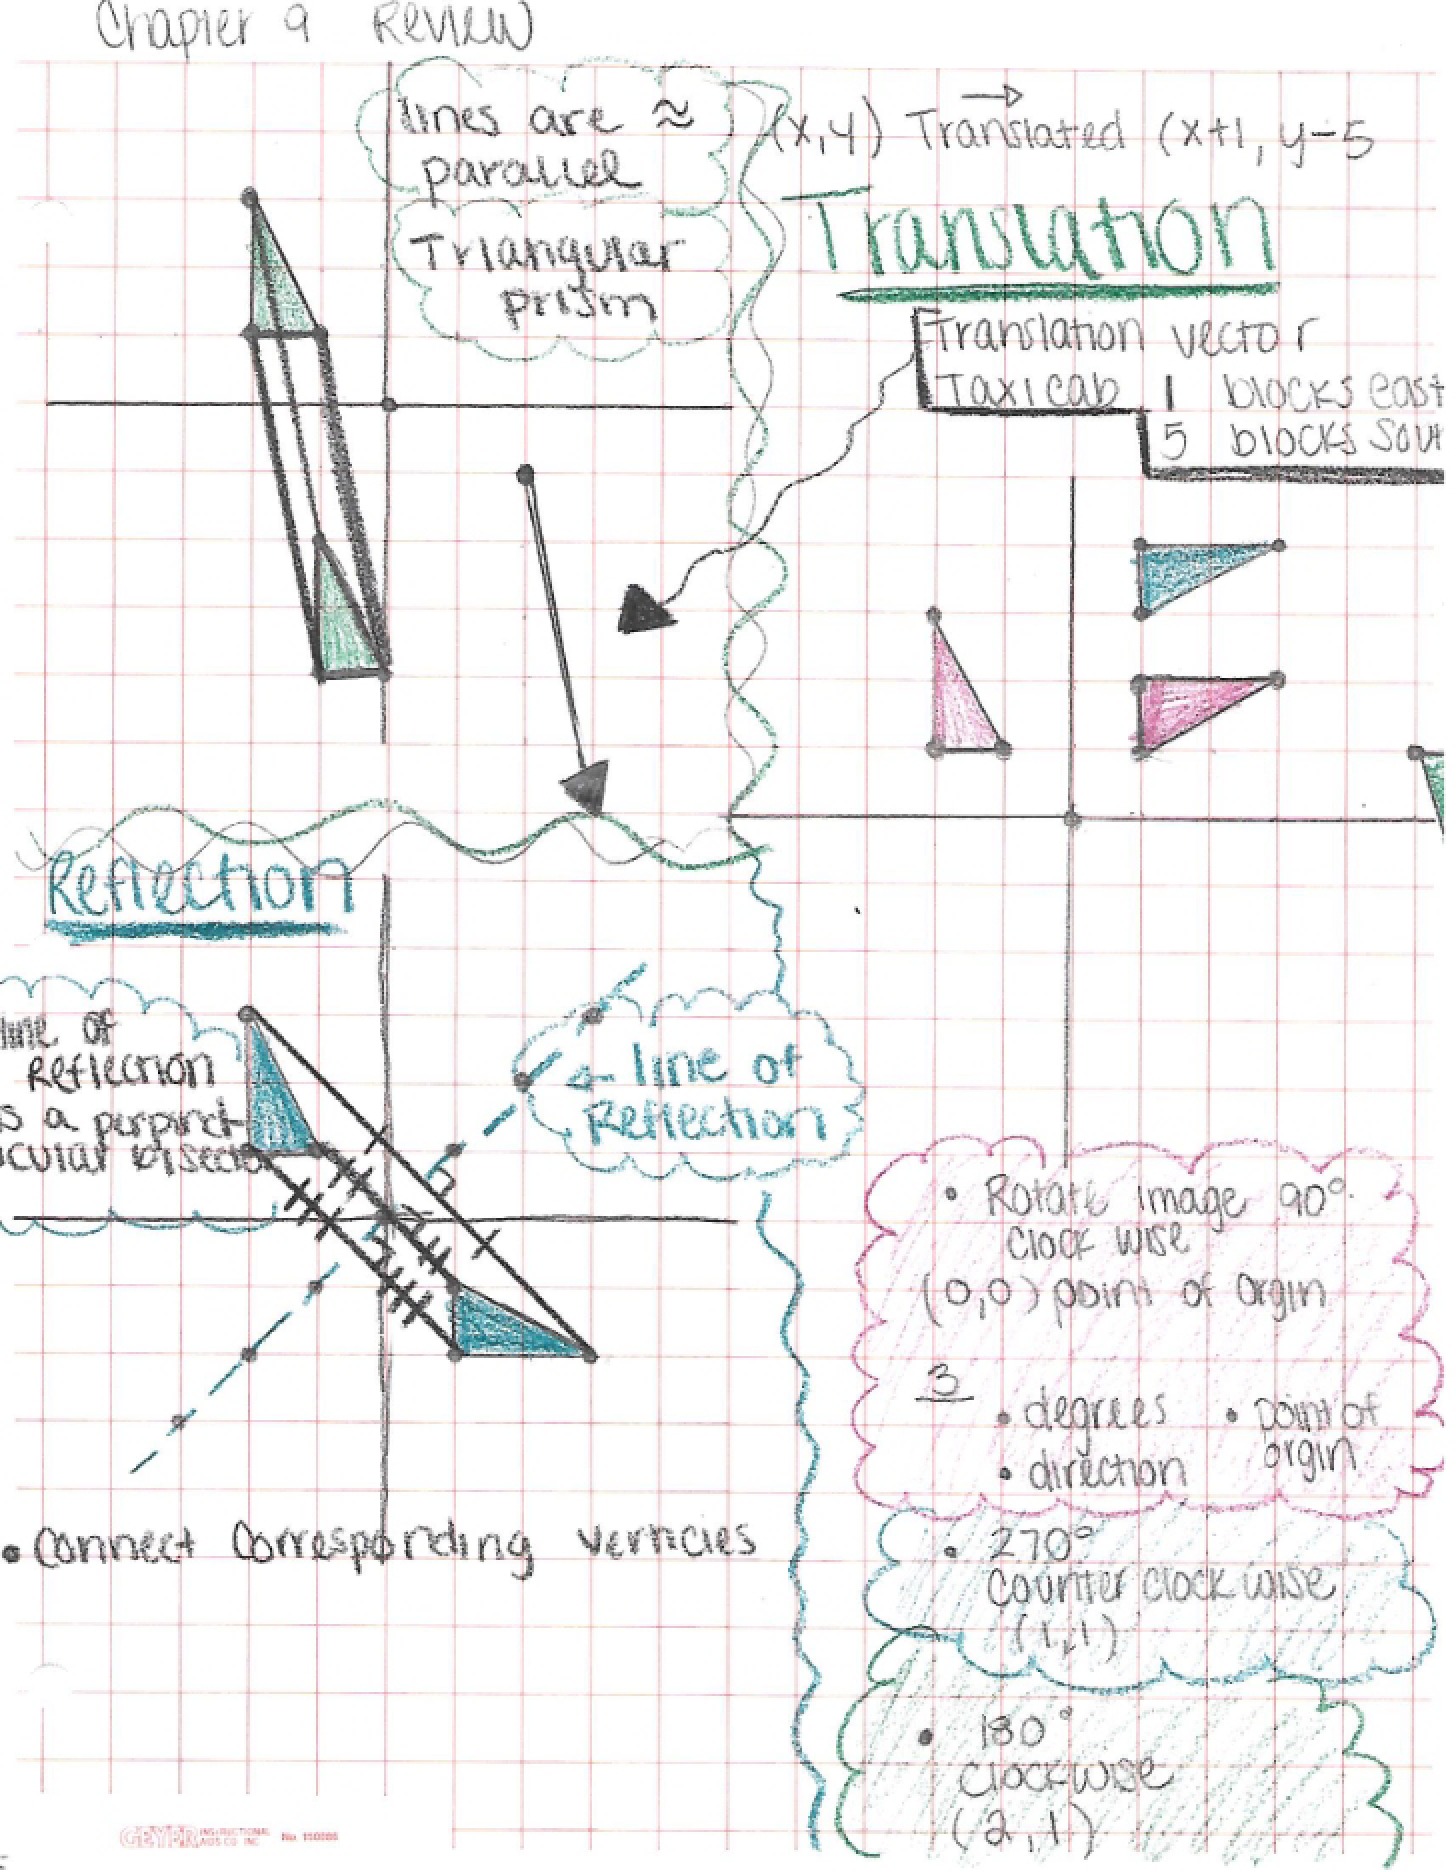 Chapter 9 Review
lines are ≈
parallel
Triangular
prism
(x,y) Translated (x+1, y-5
→
Translation
Translation vector
Taxicab 1 blocks east
5 blocks sout
Reflection
line of
Reflection
is a perpind
icular bisector
← line of
Reflection
• Connect Corresponding verticies
• Rotate image 90°
clock wise
(0,0) point of orgin
3
• degrees • point of
orgin
• direction
• 270°
counter clock wise
(1,1)
• 180°
clockwise
(2,1)
GEYER INSTRUCTIONAL
AIDS CO. INC.